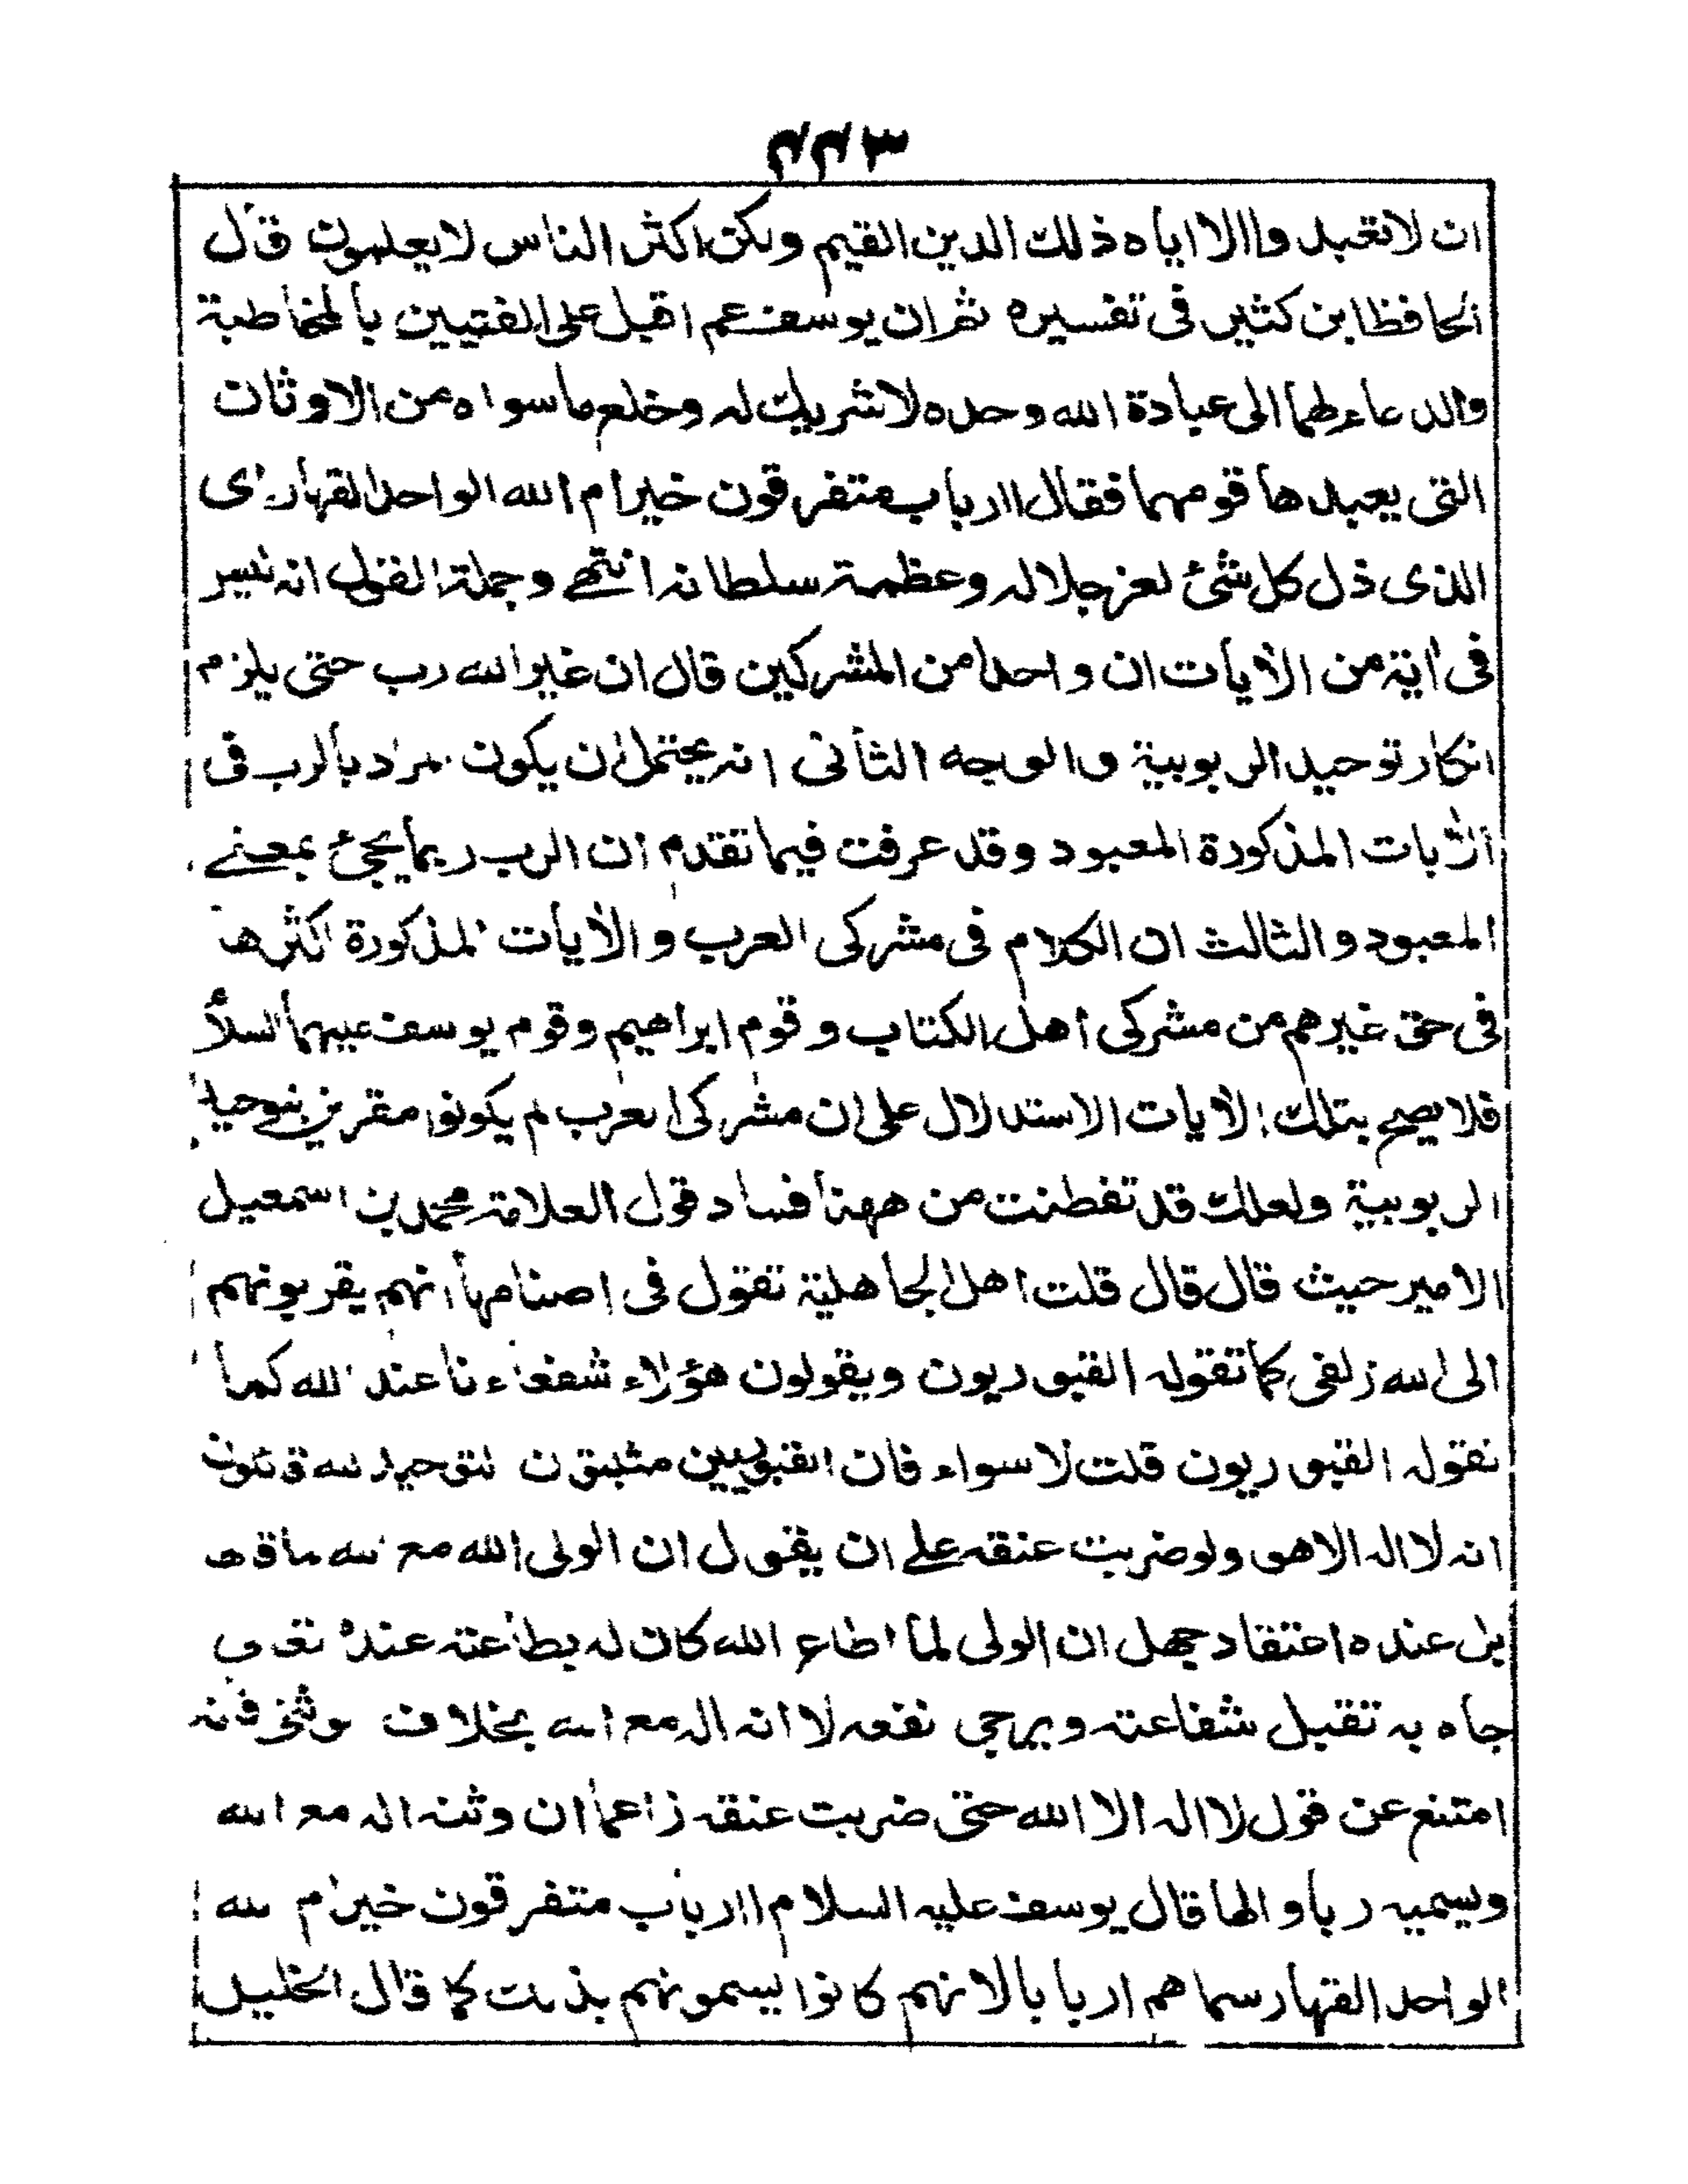 ٣٤٤
ان لا تعبد واالا اياه ذلك الدين القيم ولكن اكثر الناس لا يعلمون قال
الحافظ ابن كثير فى تفسيره ثم ان يوسف عم اقبل على الفتيين بالمخاطبة
والدعاء لهما الى عبادة الله وحده لا شريك له وخلع ما سواه من الاوثان
التى يعبدها قومهما فقال اارباب متفرقون خير ام الله الواحد القهار اى
الذى ذل كل شئ لعز جلاله وعظمة سلطانه انتهے وجملة القول انه ليس
فى اية من الأيات ان واحدا من المشركين قال ان غير الله رب حتى يلزم
انكار توحيد الربوبية والوجه الثانى انه يحتمل ان يكون المراد بالرب فى
الأيات المذكورة المعبود وقد عرفت فيما تقدم ان الرب ربما يجئ بمعنے
المعبود والثالث ان الكلام فى مشركى العرب والأيات المذكورة اكثرها
فى حق غيرهم من مشركى اهل الكتاب وقوم ابراهيم وقوم يوسف عليهما السلام
فلا يصح بتلك الأيات الاستدلال على ان مشركى العرب لم يكونوا مقرين بتوحيد
الربوبية ولعلك قد تفطنت من ههنا فساد قول العلامة محمد بن اسمعيل
الامير حيث قال قال قلت اهل الجاهلية تقول فى اصنامها انهم يقربونهم
الى الله زلفى كما تقوله القبوريون ويقولون هؤلاء شفعاءنا عند الله كما
تقوله القبوريون قلت لا سواء فان القبوريين مثبتون لتوحيد الله قائلون
انه لا اله الا هو ولو ضربت عنقه علے ان يقول ان الولى اله مع الله ما قاله
بل عنده اعتقاد جهل ان الولى لما اطاع الله كان له بطاعته عنده تعالى
جاه به تقبل شفاعته ويرجى نفعه لا انه اله مع الله بخلاف الوثنى فانه
امتنع عن قول لا اله الا الله حتى ضربت عنقه زاعما ان وثنه اله مع الله
ويسميه ربا والها قال يوسف عليه السلام اارباب متفرقون خير ام الله
الواحد القهار سماهم اربابا لانهم كانوا يسمونهم بذلك كما قال الخليل